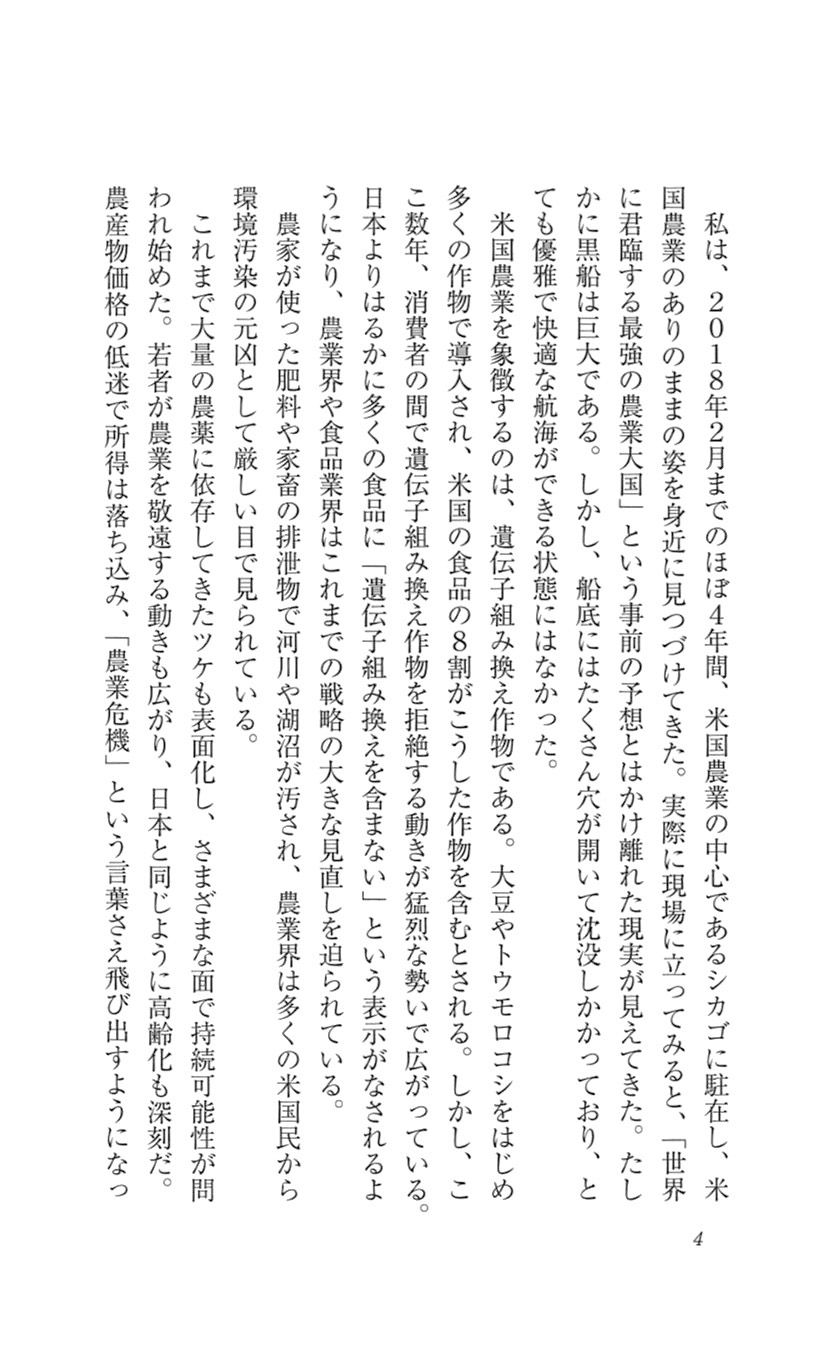 私は、２０１８年２月までのほぼ４年間、米国農業の中心であるシカゴに駐在し、米
国農業のありのままの姿を身近に見つづけてきた。実際に現場に立ってみると、「世界
に君臨する最強の農業大国」という事前の予想とはかけ離れた現実が見えてきた。たし
かに黒船は巨大である。しかし、船底にはたくさん穴が開いて沈没しかかっており、と
ても優雅で快適な航海ができる状態にはなかった。
　米国農業を象徴するのは、遺伝子組み換え作物である。大豆やトウモロコシをはじめ
多くの作物で導入され、米国の食品の８割がこうした作物を含むとされる。しかし、こ
こ数年、消費者の間で遺伝子組み換え作物を拒絶する動きが猛烈な勢いで広がっている。
日本よりはるかに多くの食品に「遺伝子組み換えを含まない」という表示がなされるよ
うになり、農業界や食品業界はこれまでの戦略の大きな見直しを迫られている。
　農家が使った肥料や家畜の排泄物で河川や湖沼が汚され、農業界は多くの米国民から
環境汚染の元凶として厳しい目で見られている。
　これまで大量の農薬に依存してきたツケも表面化し、さまざまな面で持続可能性が問
われ始めた。若者が農業を敬遠する動きも広がり、日本と同じように高齢化も深刻だ。
農産物価格の低迷で所得は落ち込み、「農業危機」という言葉さえ飛び出すようになっ
4